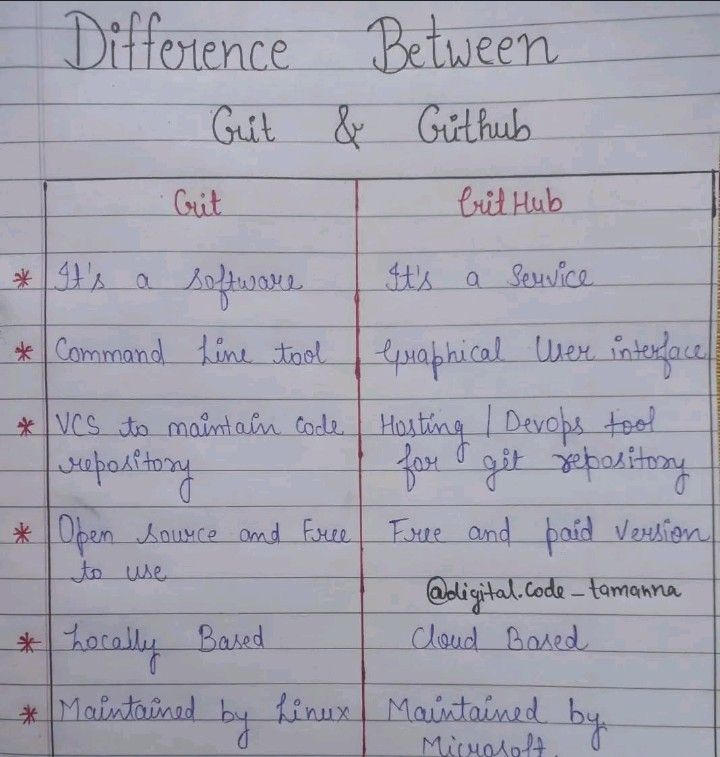 Difference Between
Git & Github
Git GitHub
* It's a software It's a Service
* Command Line tool Graphical User interface
* VCS to maintain code Hosting / Devops tool
repository for git repository
* Open source and Free Free and paid version
to use
@digital.code_tamanna
* Locally Based Cloud Based
* Maintained by Linux Maintained by
Microsoft.